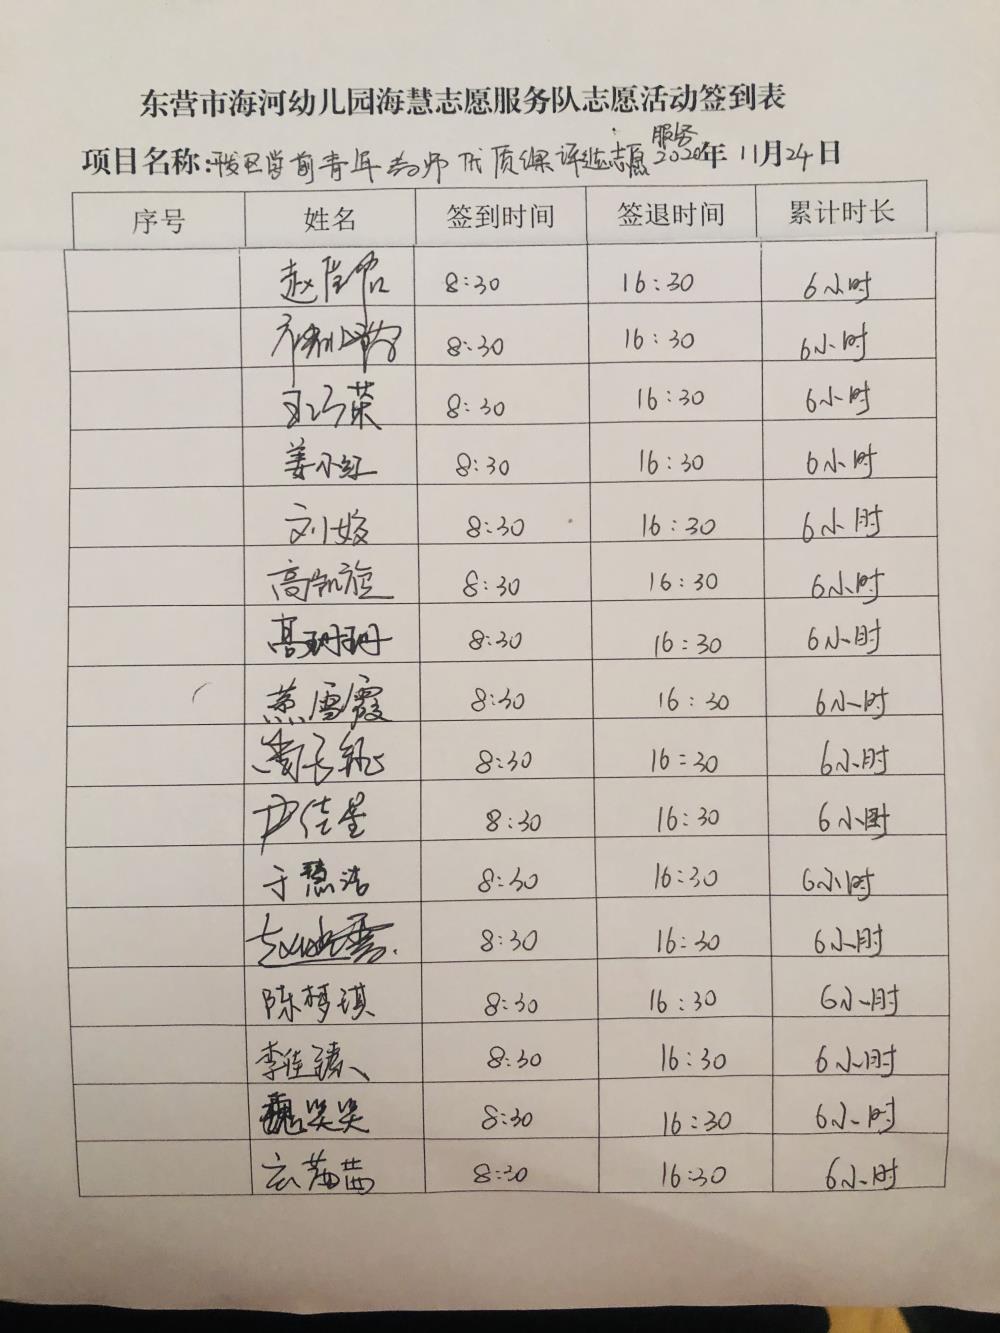 东营市海河幼儿园海慧志愿服务队志愿活动签到表
项目名称:我区学前青年教师优质课评选志愿服务 2020年 11月24日
序号 姓名 签到时间 签退时间 累计时长
赵 8:30 16:30 6小时
8:30 16:30 6小时
王巧荣 8:30 16:30 6小时
姜小红 8:30 16:30 6小时
刘姣 8:30 16:30 6小时
高凯旋 8:30 16:30 6小时
高珊珊 8:30 16:30 6小时
燕雪霞 8:30 16:30 6小时
8:30 16:30 6小时
尹佳星 8:30 16:30 6小时
于慧洁 8:30 16:30 6小时
8:30 16:30 6小时
陈梦琪 8:30 16:30 6小时
李佳臻 8:30 16:30 6小时
魏笑笑 8:30 16:30 6小时
8:30 16:30 6小时